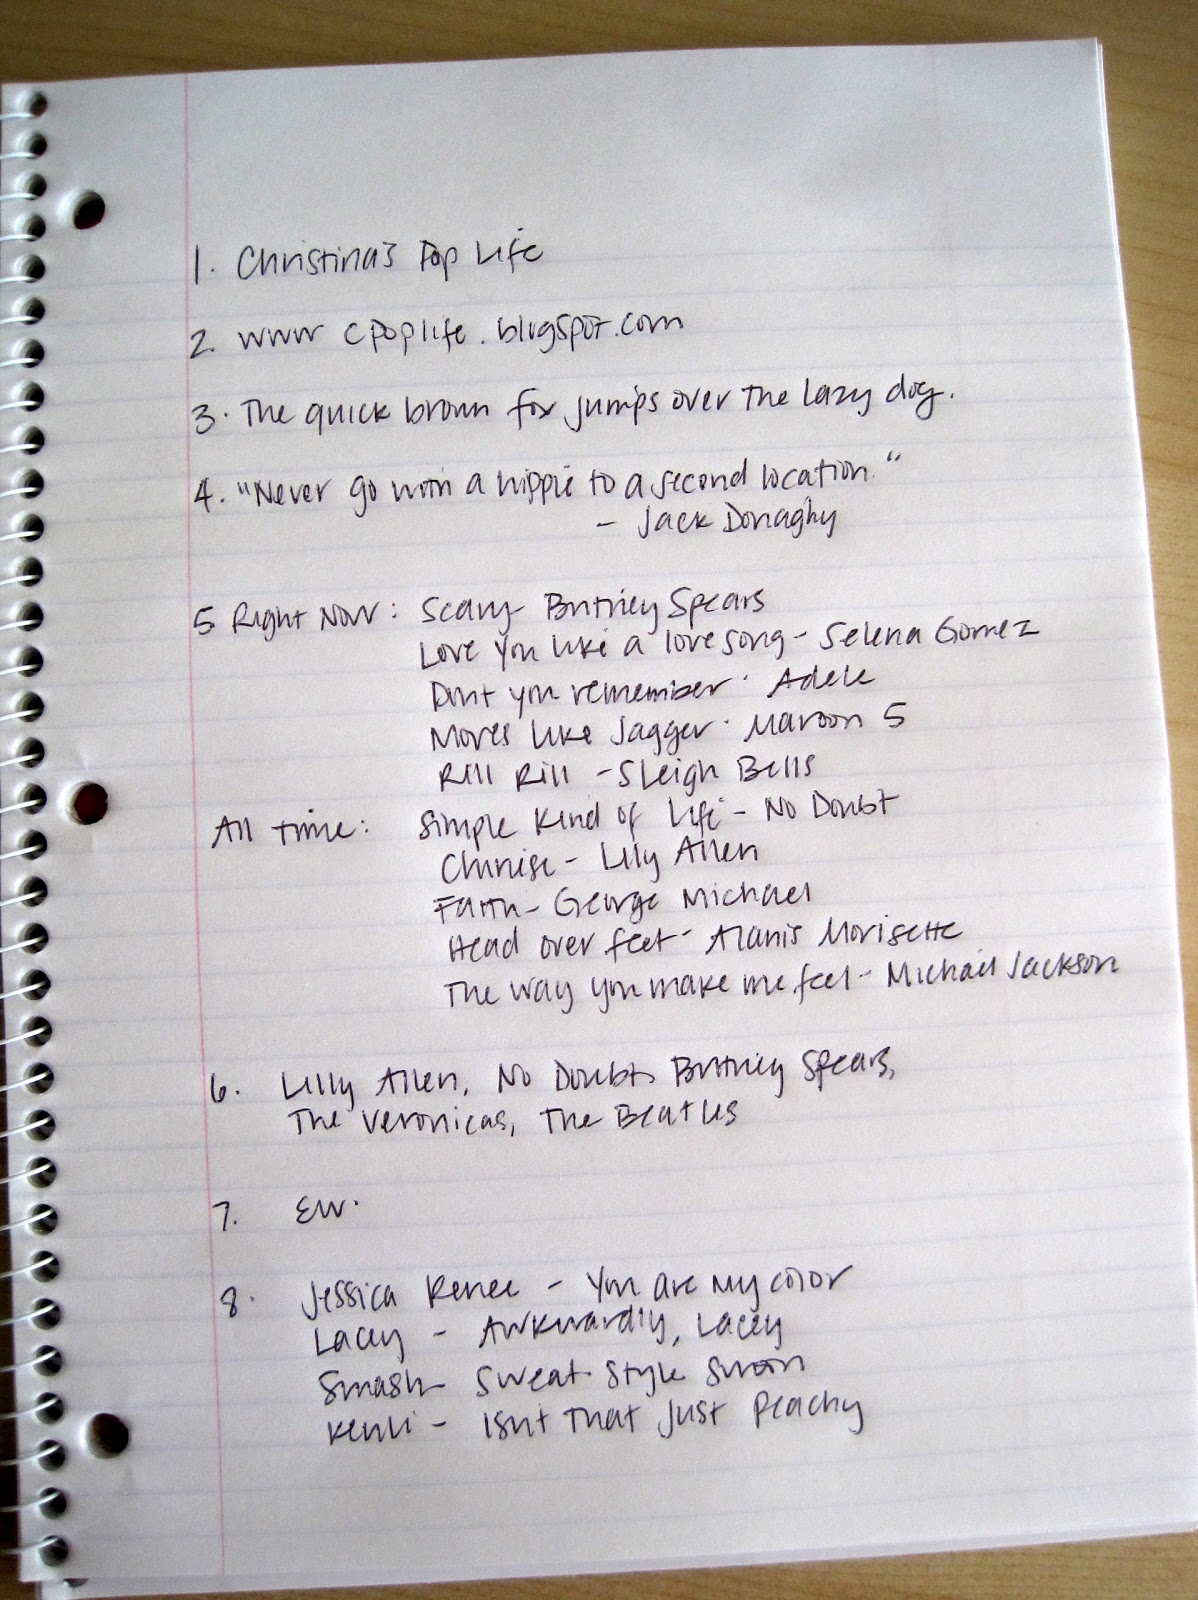 1. Christina's Pop Life
2. www cpoplife.blogspot.com
3. The quick brown fox jumps over the lazy dog.
4. "Never go with a hippie to a second location."
- Jack Donaghy
5 Right Now: Scary - Britney Spears
Love you like a love song - Selena Gomez
Dont you remember - Adele
Moves Like Jagger - Maroon 5
Rill Rill - Sleigh Bells
All time: Simple Kind of Life - No Doubt
Chinese - Lily Allen
Faith - George Michael
Head over feet - Alanis Morisette
The way you make me feel - Michael Jackson
6. Lilly Allen, No Doubt, Britney Spears,
The Veronicas, The Beatles
7. EW.
8. Jessica Renee - You are my color
Lacey - Awkwardly, Lacey
Smash - Sweat Style Swoon
Kenli - Isn't that just Peachy